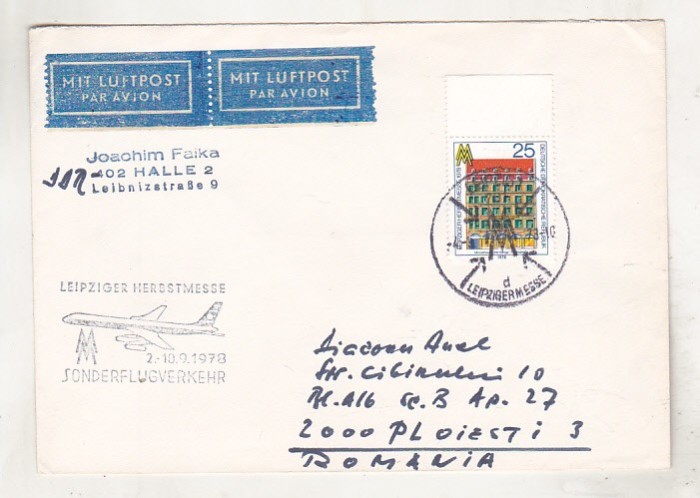 MIT LUFTPOST MIT LUFTPOST
PAR AVION PAR AVION
Joachim Falka
402 HALLE 2
Leibnizstraße 9
25
DEUTSCHE DEMOKRATISCHE REPUBLIK
LEIPZIGER HERBSTMESSE
1978
d
LEIPZIGER MESSE
LEIPZIGER HERBSTMESSE
2.-10.9.1978
SONDERFLUGVERKEHR
Diaconu Aurel
Str. Cibinului 10
Bl. A16 Sc. B Ap. 27
2000 PLOIESTI 3
ROMANIA